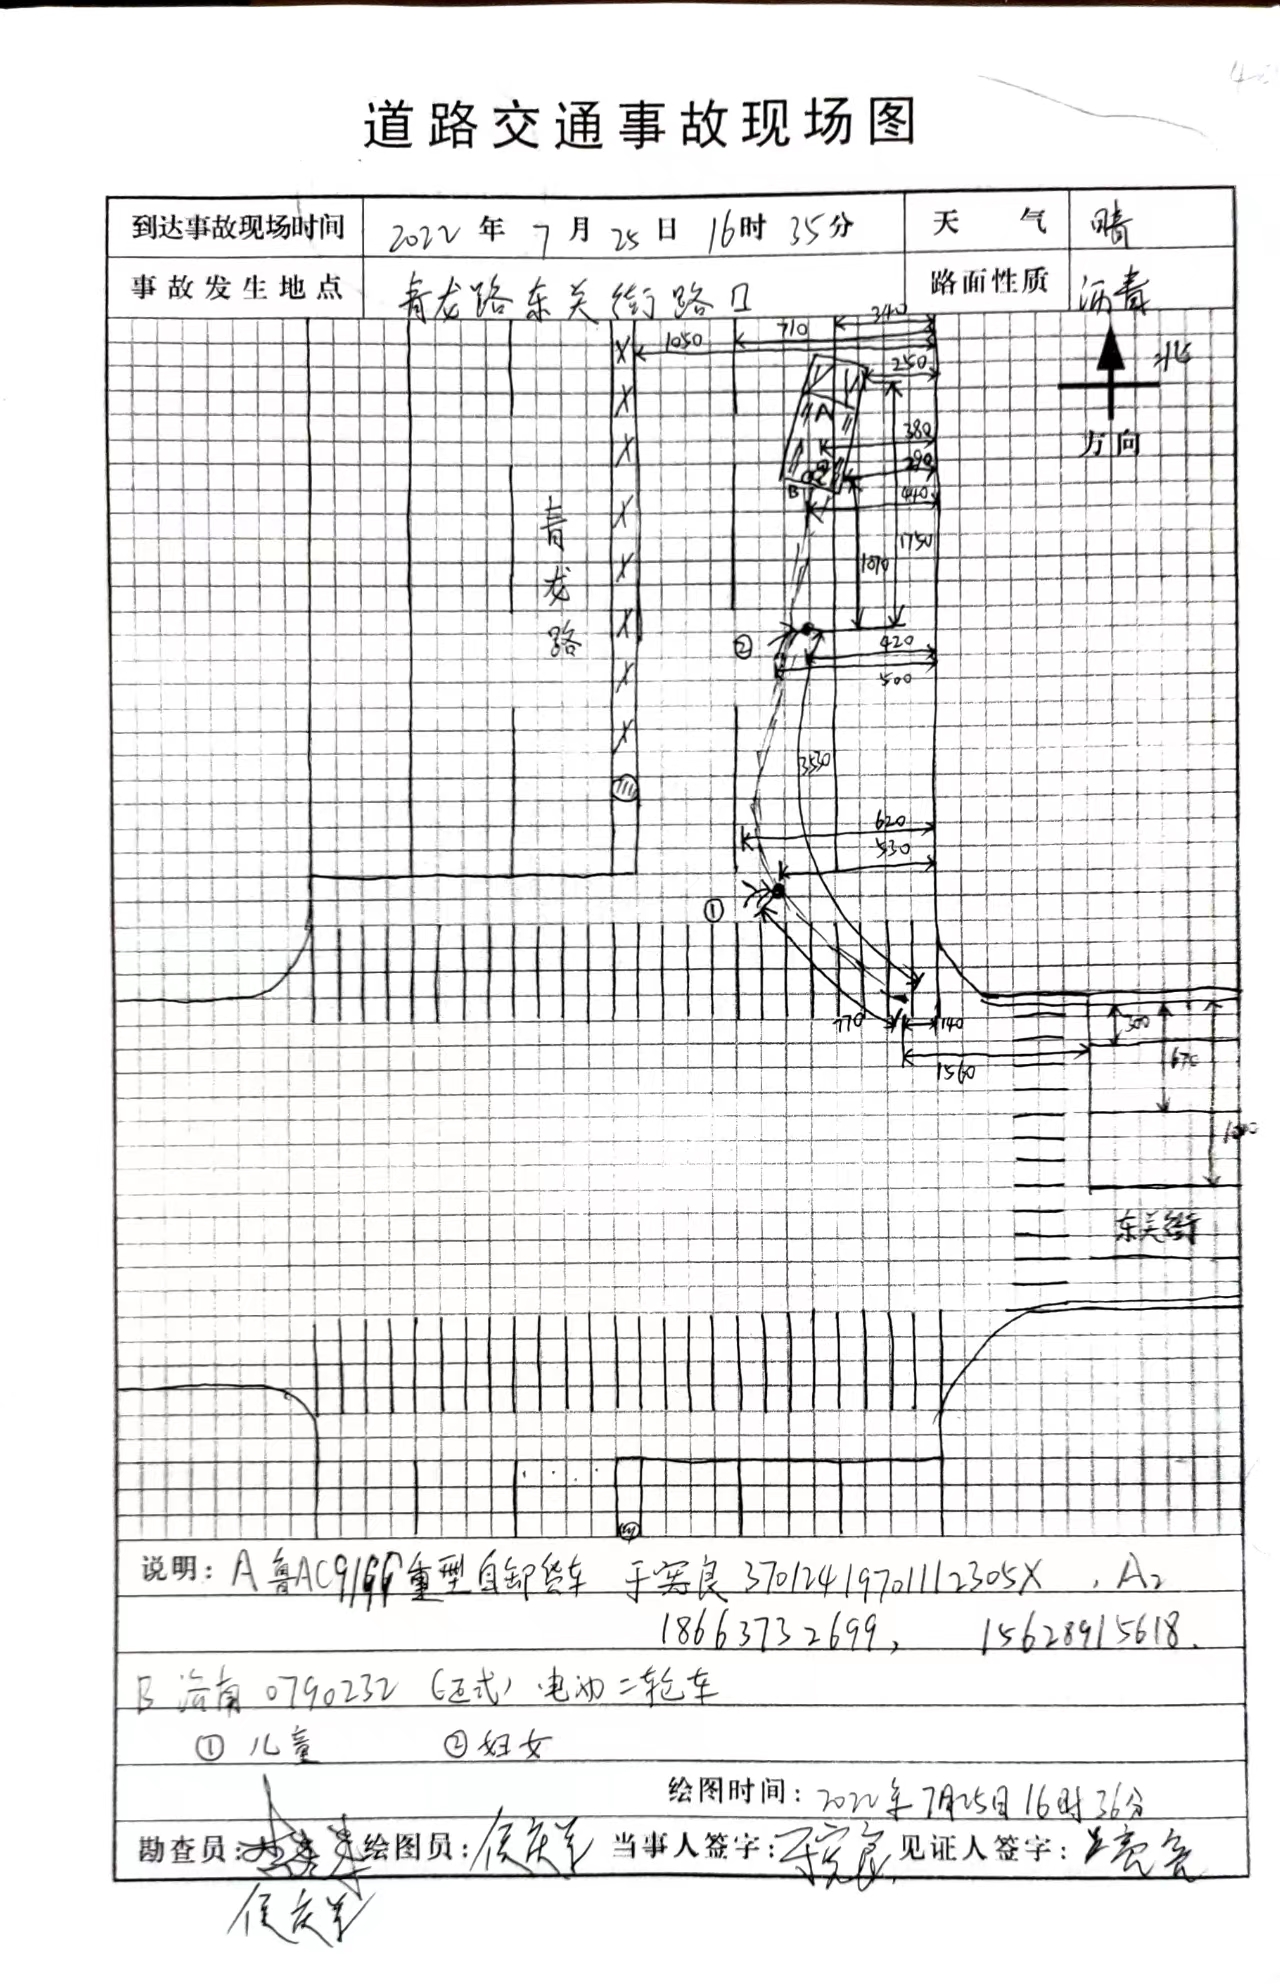 道路交通事故现场图
到达事故现场时间 2022 年 7 月 25 日 16时 35分 天 气 晴
事故发生地点 青龙路东关街路口 路面性质 沥青
340
710
1050
250
北
方向
380
290
440
1750
1070
青龙路
②
420
500
3530
620
530
①
770
140
1560
300
670
东关街
说明: A 鲁AC9166重型自卸货车 于宪良 37012419701112305X , A2
18663732699, 15628915618.
B 济南 0790232 (正式) 电动二轮车
① 儿童 ② 妇女
绘图时间: 2022年7月25日16时36分
勘查员: 绘图员: 当事人签字: 于宪良 见证人签字: